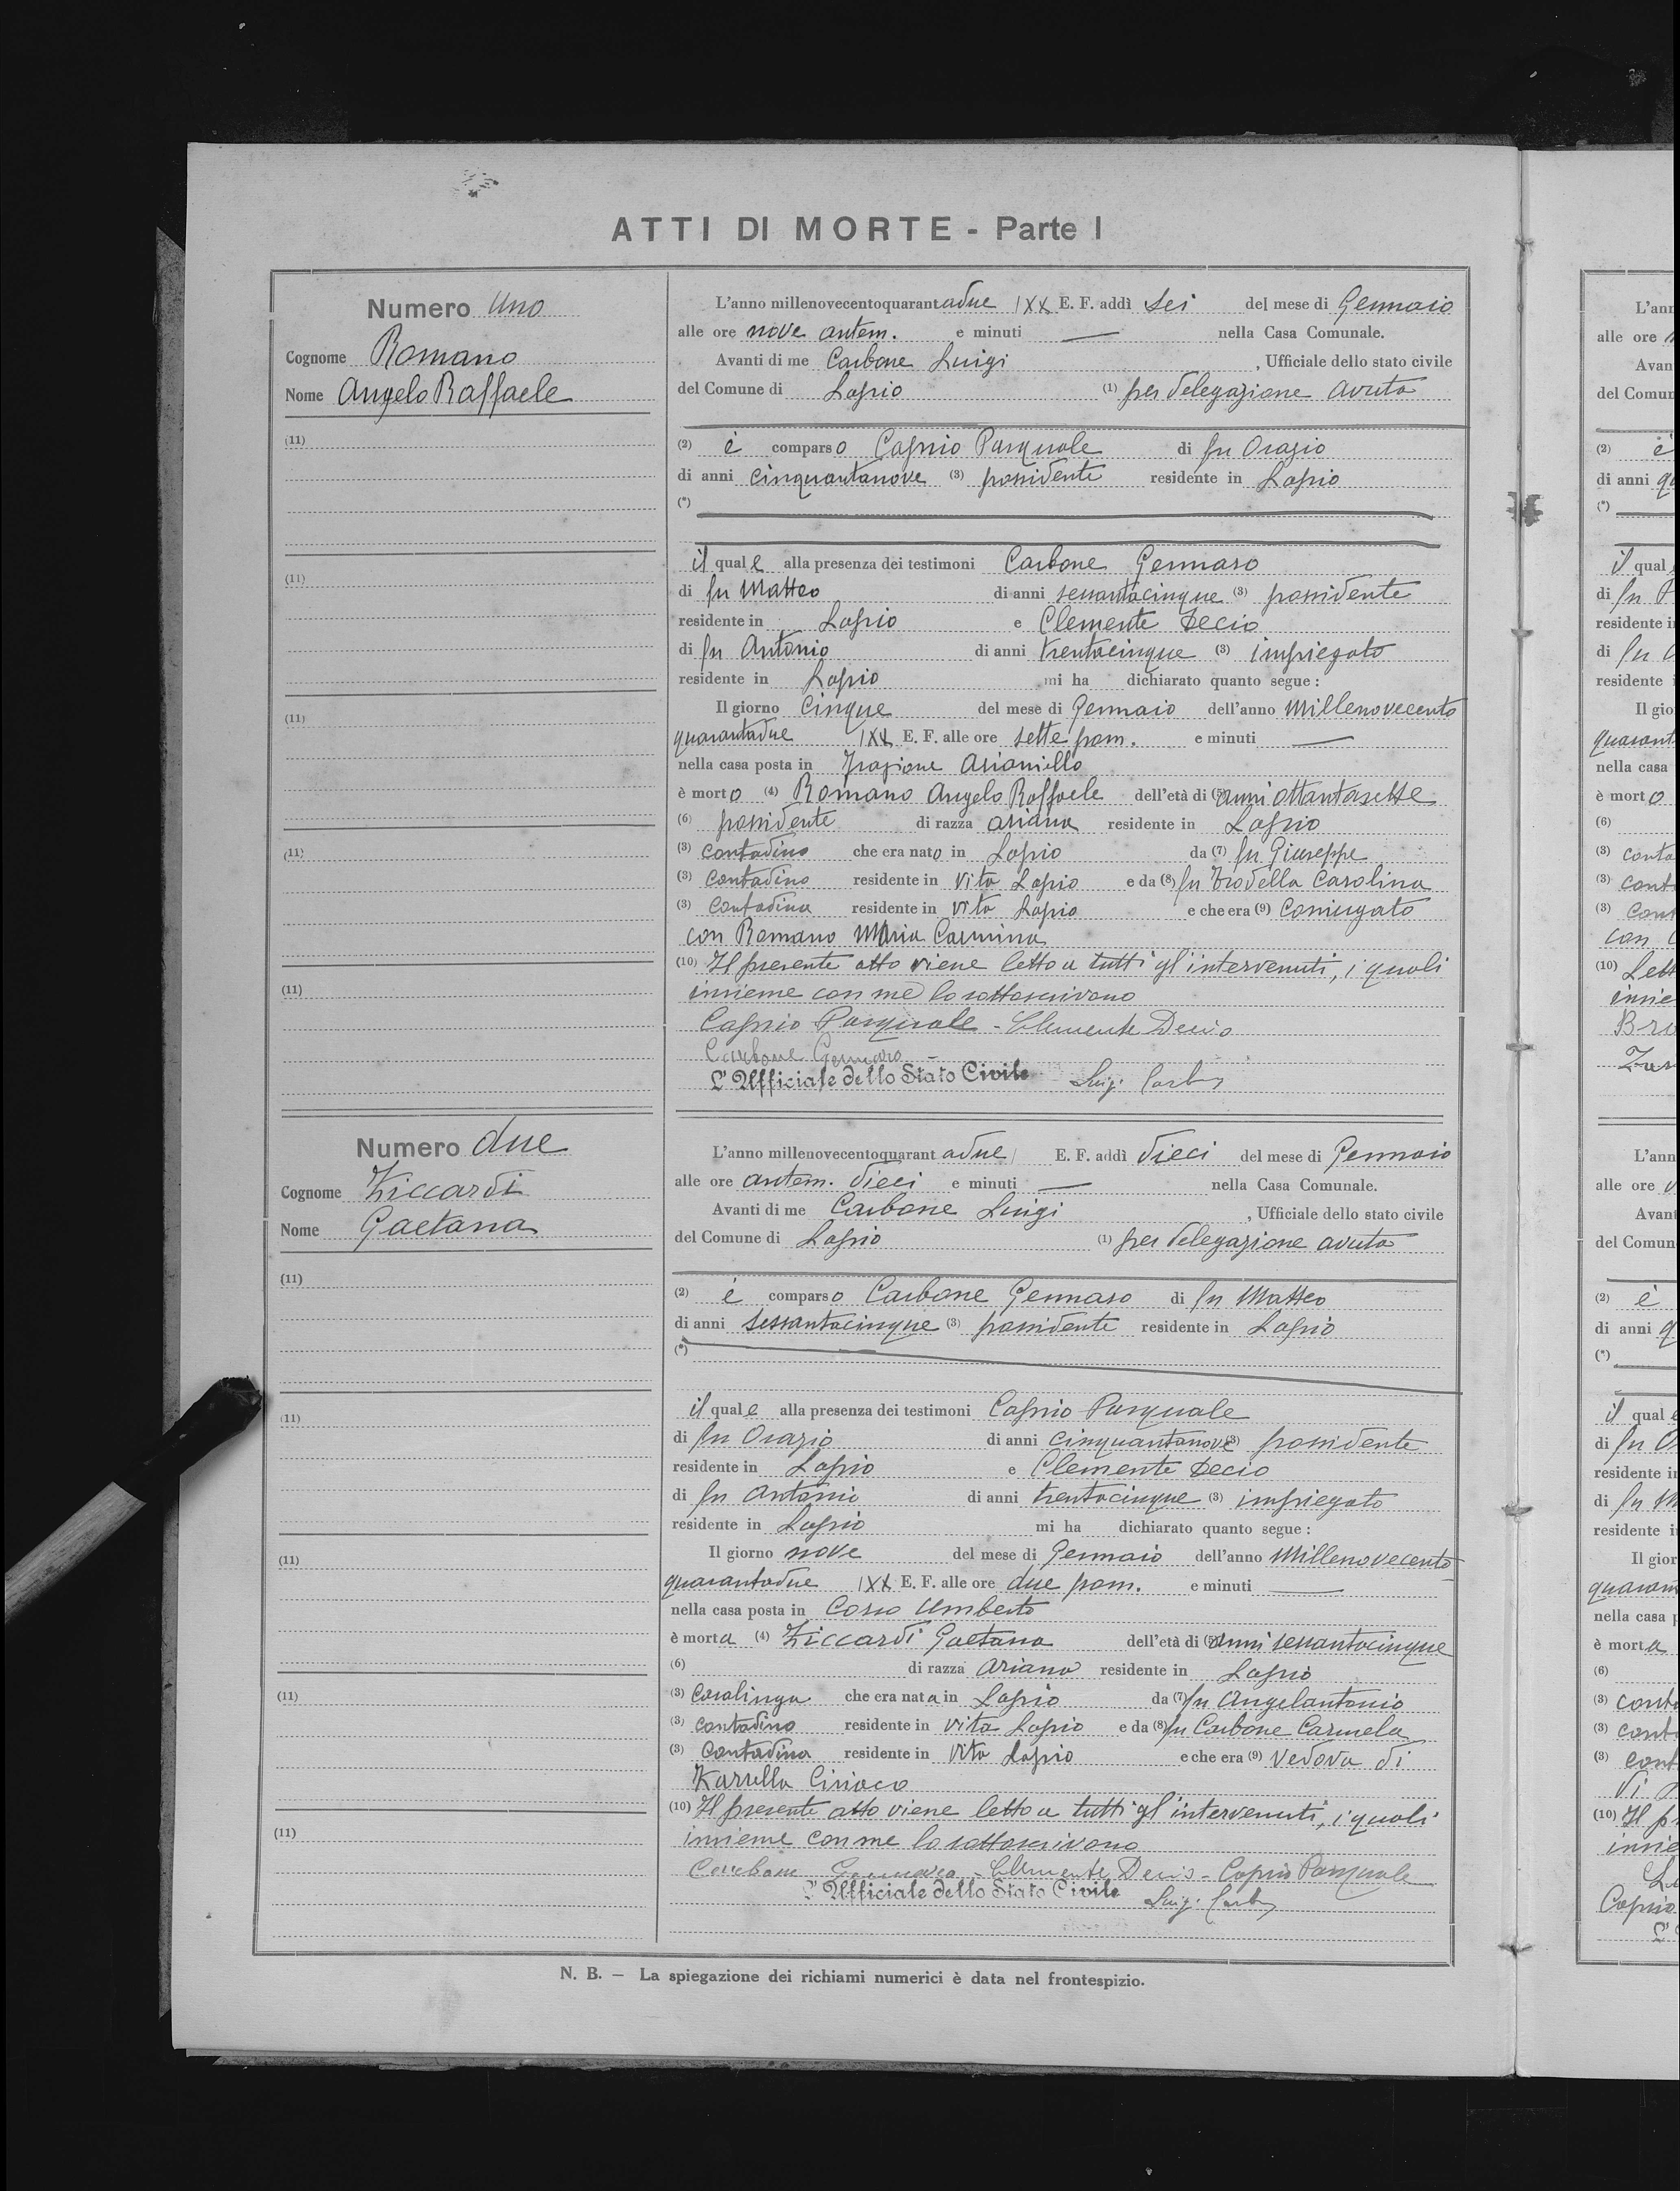 ATTI DI MORTE - Parte I
Numero Uno
Cognome Romano
Nome Angelo Raffaele
(11)
(11)
(11)
(11)
(11)
L'anno millenovecentoquarantadue IXX E. F. addì sei del mese di Gennaio
alle ore nove antem. e minuti — nella Casa Comunale.
Avanti di me Carbone Luigi, Ufficiale dello stato civile
del Comune di Lapio (1) per delegazione avuta
(2) è comparso Caprio Pasquale di fu Orazio
di anni cinquantanove (3) possidente residente in Lapio
(*)
il quale alla presenza dei testimoni Carbone Gennaro
di fu Matteo di anni sessantacinque (3) possidente
residente in Lapio e Clemente Decio
di fu Antonio di anni trentacinque (3) impiegato
residente in Lapio mi ha dichiarato quanto segue :
Il giorno cinque del mese di Gennaio dell'anno millenovecento
quarantadue IXX E. F. alle ore sette pom. e minuti —
nella casa posta in frazione Arianiello
è morto (4) Romano Angelo Raffaele dell'età di (5) anni ottantasette
(6) possidente di razza ariana residente in Lapio
(3) contadino che era nato in Lapio da (7) fu Giuseppe
(3) contadino residente in vita Lapio e da (8) fu Trodella Carolina
(3) contadina residente in vita Lapio e che era (9) coniugato
con Romano Maria Carmina
(10) Il presente atto viene letto a tutti gl'intervenuti, i quali
insieme con me lo sottoscrivono
Caprio Pasquale - Clemente Decio
Carbone Gennaro -
L'Ufficiale dello Stato Civile Luigi Carb
Numero due
Cognome Ziccardi
Nome Gaetana
(11)
(11)
(11)
(11)
(11)
L'anno millenovecentoquarantadue E. F. addì dieci del mese di Gennaio
alle ore antem. dieci e minuti — nella Casa Comunale.
Avanti di me Carbone Luigi, Ufficiale dello stato civile
del Comune di Lapio (1) per delegazione avuta
(2) è comparso Carbone Gennaro di fu Matteo
di anni sessantacinque (3) possidente residente in Lapio
(*)
il quale alla presenza dei testimoni Caprio Pasquale
di fu Orazio di anni cinquantanove (3) possidente
residente in Lapio e Clemente Decio
di fu Antonio di anni trentacinque (3) impiegato
residente in Lapio mi ha dichiarato quanto segue :
Il giorno nove del mese di Gennaio dell'anno millenovecento
quarantadue IXX E. F. alle ore due pom. e minuti —
nella casa posta in Corso Umberto
è morta (4) Ziccardi Gaetana dell'età di (5) anni sessantacinque
(6) di razza ariana residente in Lapio
(3) casalinga che era nata in Lapio da (7) fu Angelantonio
(3) contadino residente in vita Lapio e da (8) fu Carbone Carmela
(3) contadina residente in vita Lapio e che era (9) vedova di
Karrella Ciriaco
(10) Il presente atto viene letto a tutti gl'intervenuti, i quali
insieme con me lo sottoscrivono
Carbone Gennaro - Clemente Decio - Caprio Pasquale
L'Ufficiale dello Stato Civile Luigi Carb
N. B. — La spiegazione dei richiami numerici è data nel frontespizio.